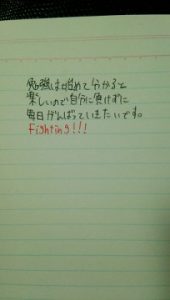 勉強は始めて分かると
楽しいので自分に負けずに
毎日がんばっていきたいです。
Fighting!!!